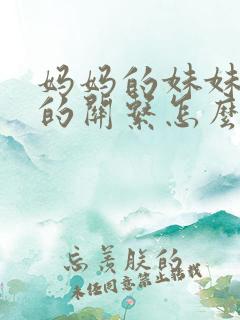 妈妈的妹妹
的關繫怎麼
忘羡朕的
未经同意禁止转载